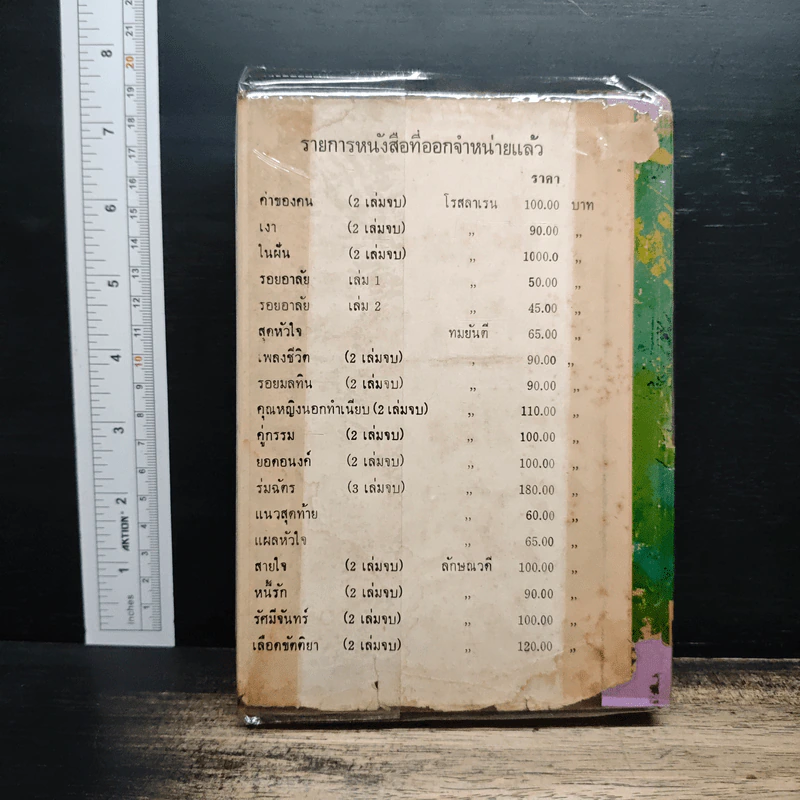 รายการหนังสือที่ออกจำหน่ายแล้ว
ราคา
ค่าของคน (2 เล่มจบ) โรสลาเรน 100.00 บาท
เงา (2 เล่มจบ) ,, 90.00 ,,
ในฝัน (2 เล่มจบ) ,, 1000.0 ,,
รอยอาลัย เล่ม 1 ,, 50.00 ,,
รอยอาลัย เล่ม 2 ,, 45.00 ,,
สุดหัวใจ ทมยันตี 65.00 ,,
เพลงชีวิต (2 เล่มจบ) , 90.00 ,,
รอยมลทิน (2 เล่มจบ) ,, 90.00 ,,
คุณหญิงนอกทำเนียบ (2 เล่มจบ) ,, 110.00 ,,
คู่กรรม (2 เล่มจบ) ,, 100.00 ,,
ยอดอนงค์ (2 เล่มจบ) ,, 100.00 ,,
ร่มฉัตร (3 เล่มจบ) ,, 180.00 ,,
แนวสุดท้าย ,, 60.00 ,,
แผลหัวใจ ,, 65.00 ,,
สายใจ (2 เล่มจบ) ลักษณวดี 100.00 ,,
หนี้รัก (2 เล่มจบ) ,, 90.00 ,,
รัศมีจันทร์ (2 เล่มจบ) ,, 100.00 ,,
เลือดขัตติยา (2 เล่มจบ) ,, 120.00 ,,
8
7
6
5
4
3
2
1
inches
AKTION
20
19
18
17
16
15
14
13
12
11
10
9
8
7
6
5
4
3
2
1